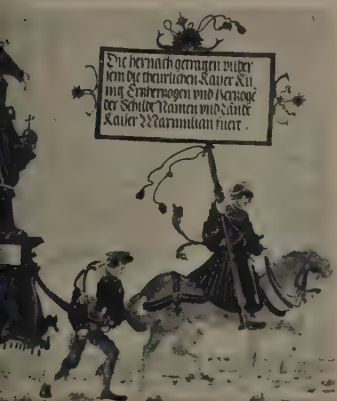 Die hernach getragen pilder
sein die theurlichen Kayser Kü
nig Ertzhertzogen vnd Hertzogē
der Schildt Namen vnd Lānde
Kaiser Maximilian fuert .